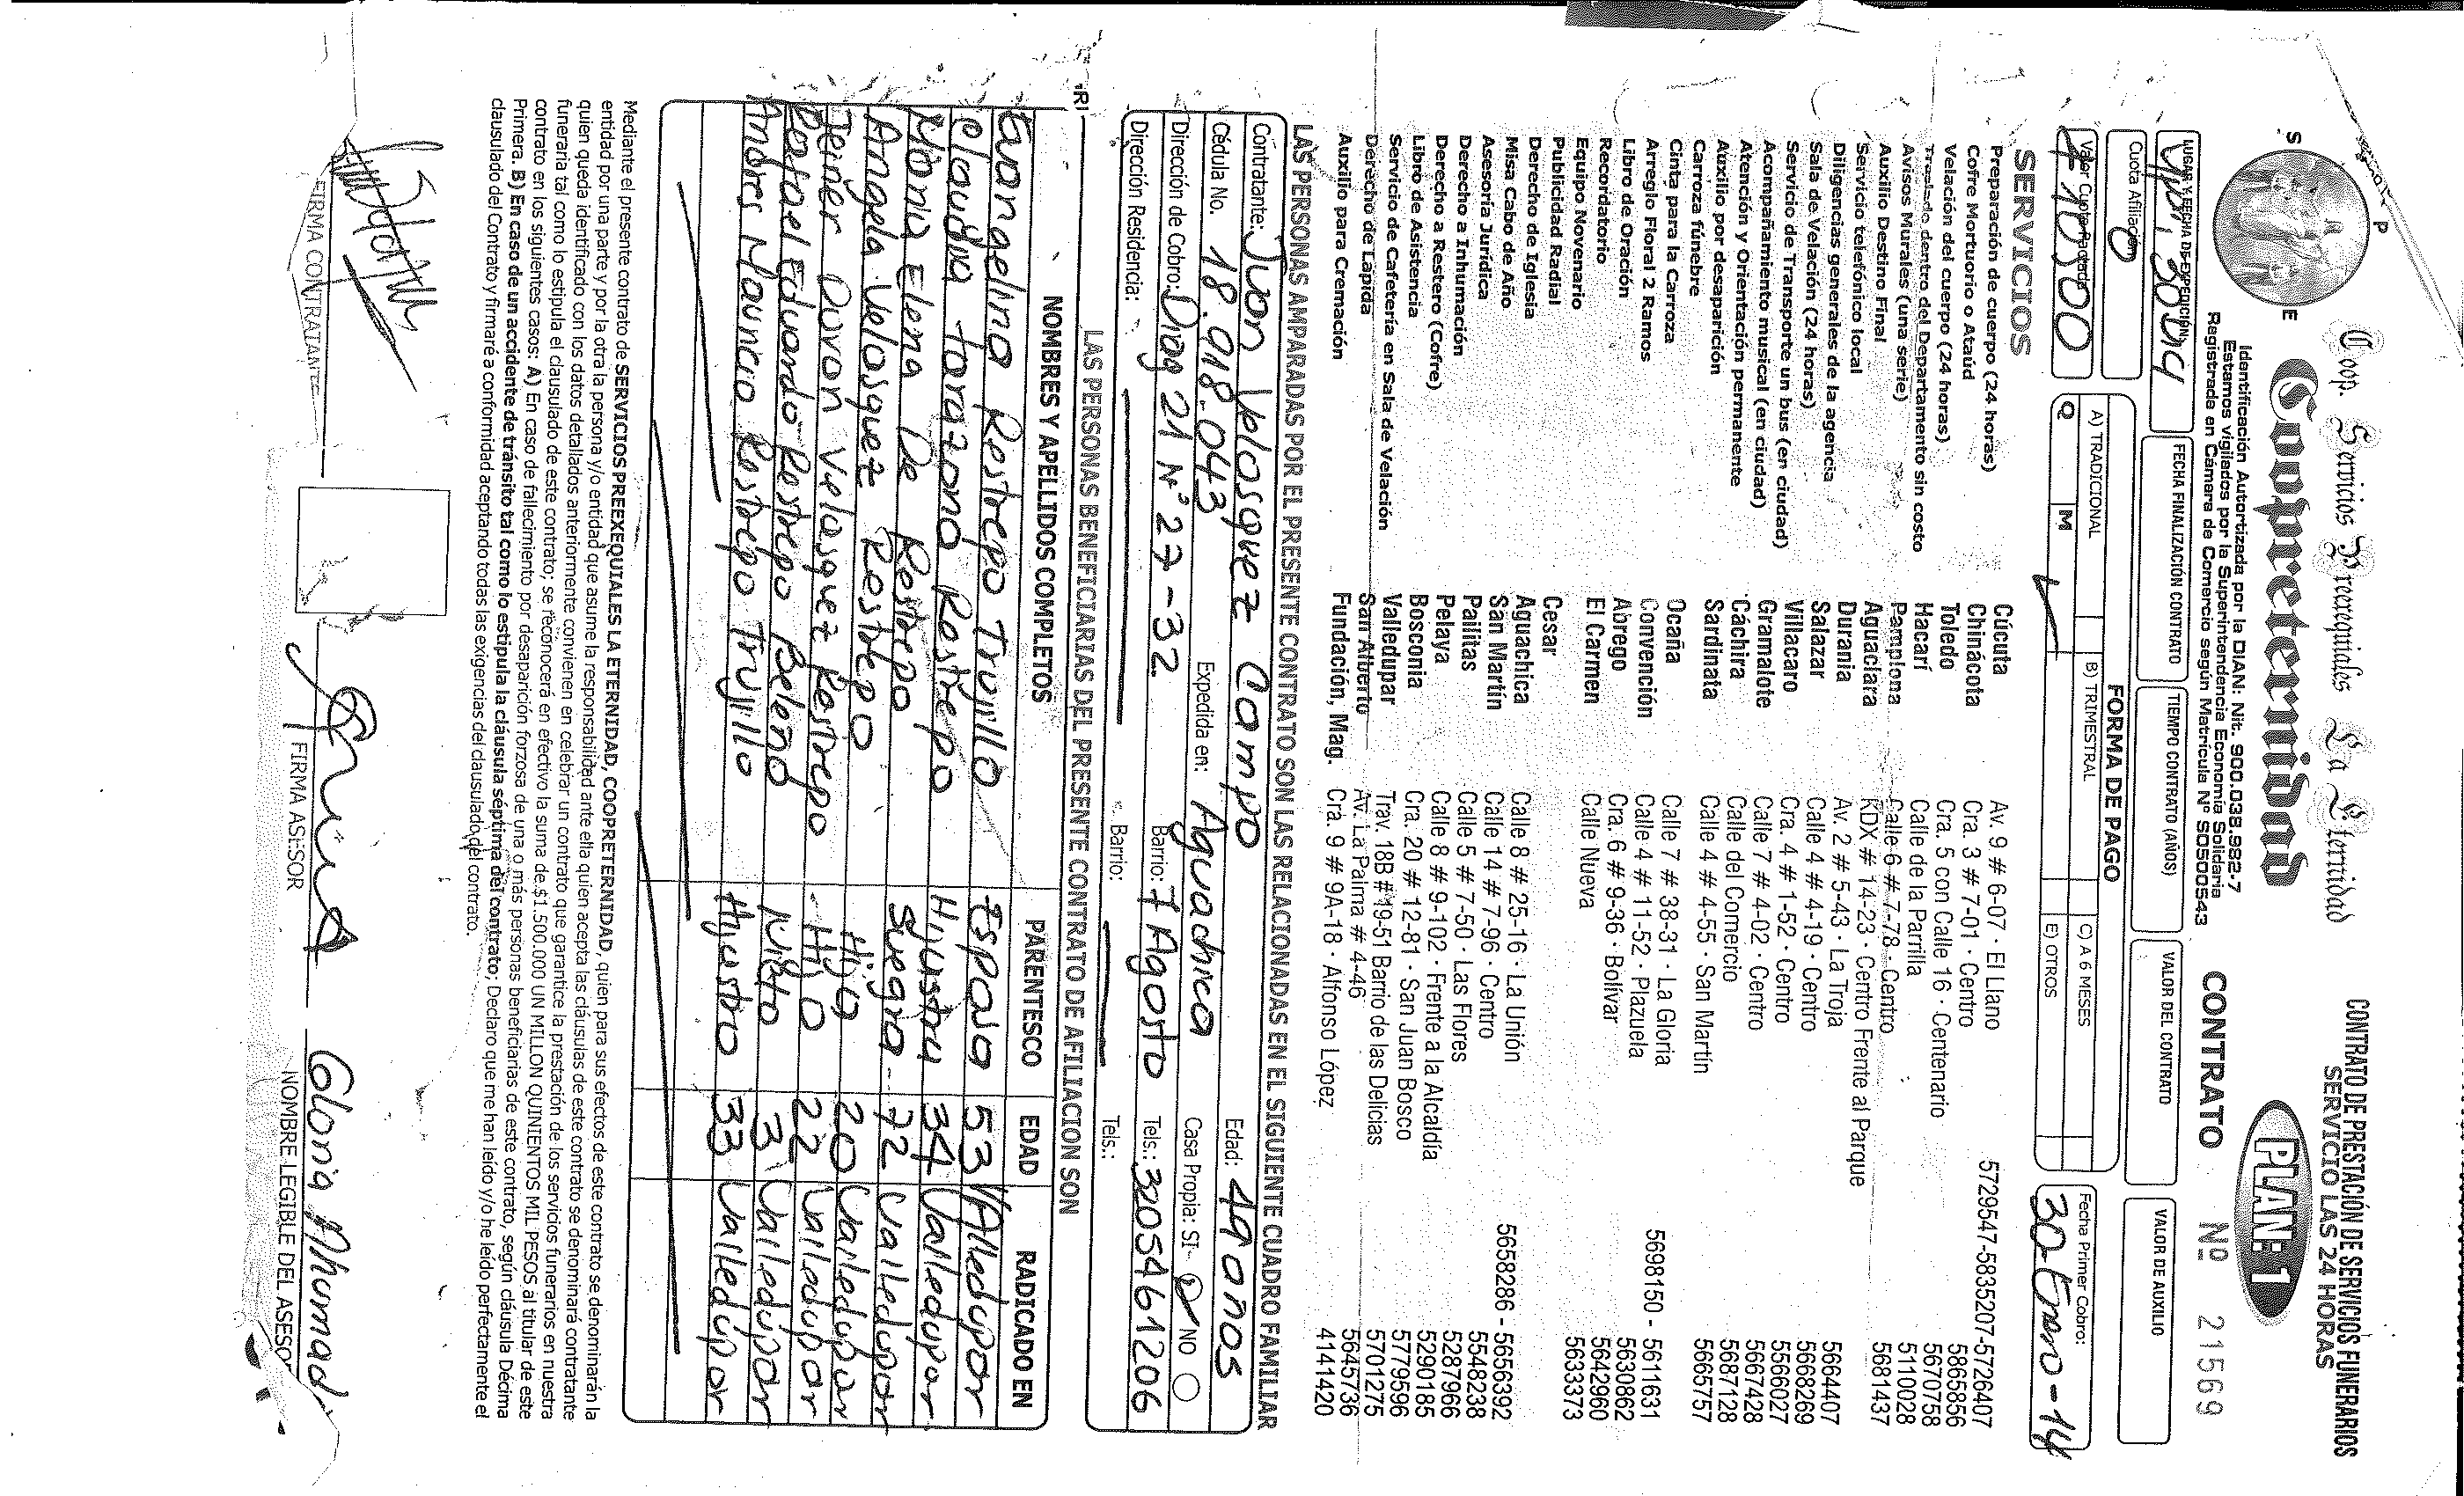 Coop. Servicios Preexequiales La Eternidad
Coopreternidad
Identificación Autortizada por la DIAN: Nit. 900.038.982-7
Estamos vigilados por la Superintendencia Economía Solidaria
Registrada en Cámara de Comercio según Matrícula Nº S0500543
CONTRATO DE PRESTACIÓN DE SERVICIOS FUNERARIOS
SERVICIO LAS 24 HORAS
PLAN: 1
CONTRATO Nº 21569
LUGAR Y FECHA DE EXPEDICIÓN
FECHA FINALIZACIÓN CONTRATO
TIEMPO CONTRATO (AÑOS)
VALOR DEL CONTRATO
VALOR DE AUXILIO
Cuota Afiliación 0
FORMA DE PAGO
A) TRADICIONAL
B) TRIMESTRAL
C) A 6 MESES
Q M
E) OTROS
Valor Cuota Pactada 10500
Fecha Primer Cobro: 30-Enero-14
SERVICIOS
Preparación de cuerpo (24 horas)
Cofre Mortuorio o Ataúd
Velación del cuerpo (24 horas)
Traslado dentro del Departamento sin costo
Avisos Murales (una serie)
Auxilio Destino Final
Servicio telefónico local
Diligencias generales de la agencia
Sala de Velación (24 horas)
Servicio de Transporte un bus (en ciudad)
Acompañamiento musical (en ciudad)
Atención y Orientación permanente
Auxilio por desaparición
Carroza fúnebre
Cinta para la Carroza
Arreglo Floral 2 Ramos
Libro de Oración
Recordatorio
Equipo Novenario
Publicidad Radial
Derecho de Iglesia
Misa Cabo de Año
Asesoría Jurídica
Derecho a Inhumación
Derecho a Restero (Cofre)
Libro de Asistencia
Servicio de Cafetería en Sala de Velación
Derecho de Lapida
Auxilio para Cremación
Cúcuta Av. 9 # 6-07 · El Llano 5729547-5835207-5726407
Chinácota Cra. 3 # 7-01 · Centro 5865856
Toledo Cra. 5 con Calle 16 · Centenario 5670758
Hacarí Calle de la Parrilla 5110028
Pamplona Calle 6 # 7-78 · Centro 5681437
Aguaclara KDX # 14-23 · Centro Frente al Parque
Durania Av. 2 # 5-43 · La Troja 5664407
Salazar Calle 4 # 4-19 · Centro 5668269
Villacaro Cra. 4 # 1-52 · Centro 5566027
Gramalote Calle 7 # 4-02 · Centro 5667428
Cáchira Calle del Comercio 5687128
Sardinata Calle 4 # 4-55 · San Martín 5665757
Ocaña Calle 7 # 38-31 · La Gloria 5698150 - 5611631
Convención Calle 4 # 11-52 · Plazuela 5630862
Abrego Cra. 6 # 9-36 · Bolívar 5642960
El Carmen Calle Nueva 5633373
Cesar
Aguachica Calle 8 # 25-16 · La Unión 5658286 - 5656392
San Martín Calle 14 # 7-96 · Centro 5548238
Pailitas Calle 5 # 7-50 · Las Flores 5287966
Pelaya Calle 8 # 9-102 · Frente a la Alcaldía 5290185
Bosconia Cra. 20 # 12-81 · San Juan Bosco 5779596
Valledupar Trav. 18B # 19-51 Barrio de las Delicias 5701275
San Alberto Av. La Palma # 4-46 5645736
Fundación, Mag. Cra. 9 # 9A-18 · Alfonso López 4141420
LAS PERSONAS AMPARADAS POR EL PRESENTE CONTRATO SON LAS RELACIONADAS EN EL SIGUIENTE CUADRO FAMILIAR
Contratante: Juan Velasquez Campo Edad: 49 años
Cédula No. 18.918.043 Expedida en: Aguachica Casa Propia: SI NO
Dirección de Cobro: Diag 21 Nº 27-32 Barrio: 7 Agosto Tels.: 3205461206
Dirección Residencia: Barrio: Tels.:
LAS PERSONAS BENEFICIARIAS DEL PRESENTE CONTRATO DE AFILIACION SON
NOMBRES Y APELLIDOS COMPLETOS PARENTESCO EDAD RADICADO EN
Evangelina Restrepo Trujillo Esposa 53 Valledupar
Claudia Tarazona Restrepo Hijastra 34 Valledupar
Maria Elena De Restrepo Suegra 72 Valledupar
Angela Velasquez Restrepo Hija 20 Valledupar
Jeiner Duvan Velasquez Restrepo Hijo 22 Valledupar
Rafael Eduardo Restrepo Beleño Nieto 3 Valledupar
Andres Mauricio Restrepo Trujillo Hijastro 33 Valledupar
Mediante el presente contrato de SERVICIOS PREEXEQUIALES LA ETERNIDAD, COOPRETERNIDAD, quien para sus efectos de este contrato se denominarán la
entidad por una parte y por la otra la persona y/o entidad que asume la responsabilidad ante ella quien acepta las cláusulas de este contrato se denominará contratante
quien queda identificado con los datos detallados anteriormente convienen en celebrar un contrato que garantice la prestación de los servicios funerarios en nuestra
funeraria tal como lo estipula el clausulado de este contrato; se reconocerá en efectivo la suma de $1.500.000 UN MILLON QUINIENTOS MIL PESOS al titular de este
contrato en los siguientes casos: A) En caso de fallecimiento por desaparición forzosa de una o más personas beneficiarias de este contrato, según cláusula Décima
Primera. B) En caso de un accidente de tránsito tal como lo estipula la cláusula séptima del contrato; Declaro que me han leído y/o he leído perfectamente el
clausulado del Contrato y firmaré a conformidad aceptando todas las exigencias del clausulado del contrato.
FIRMA CONTRATANTE
FIRMA ASESOR
Gloria Ahumada
NOMBRE LEGIBLE DEL ASESOR